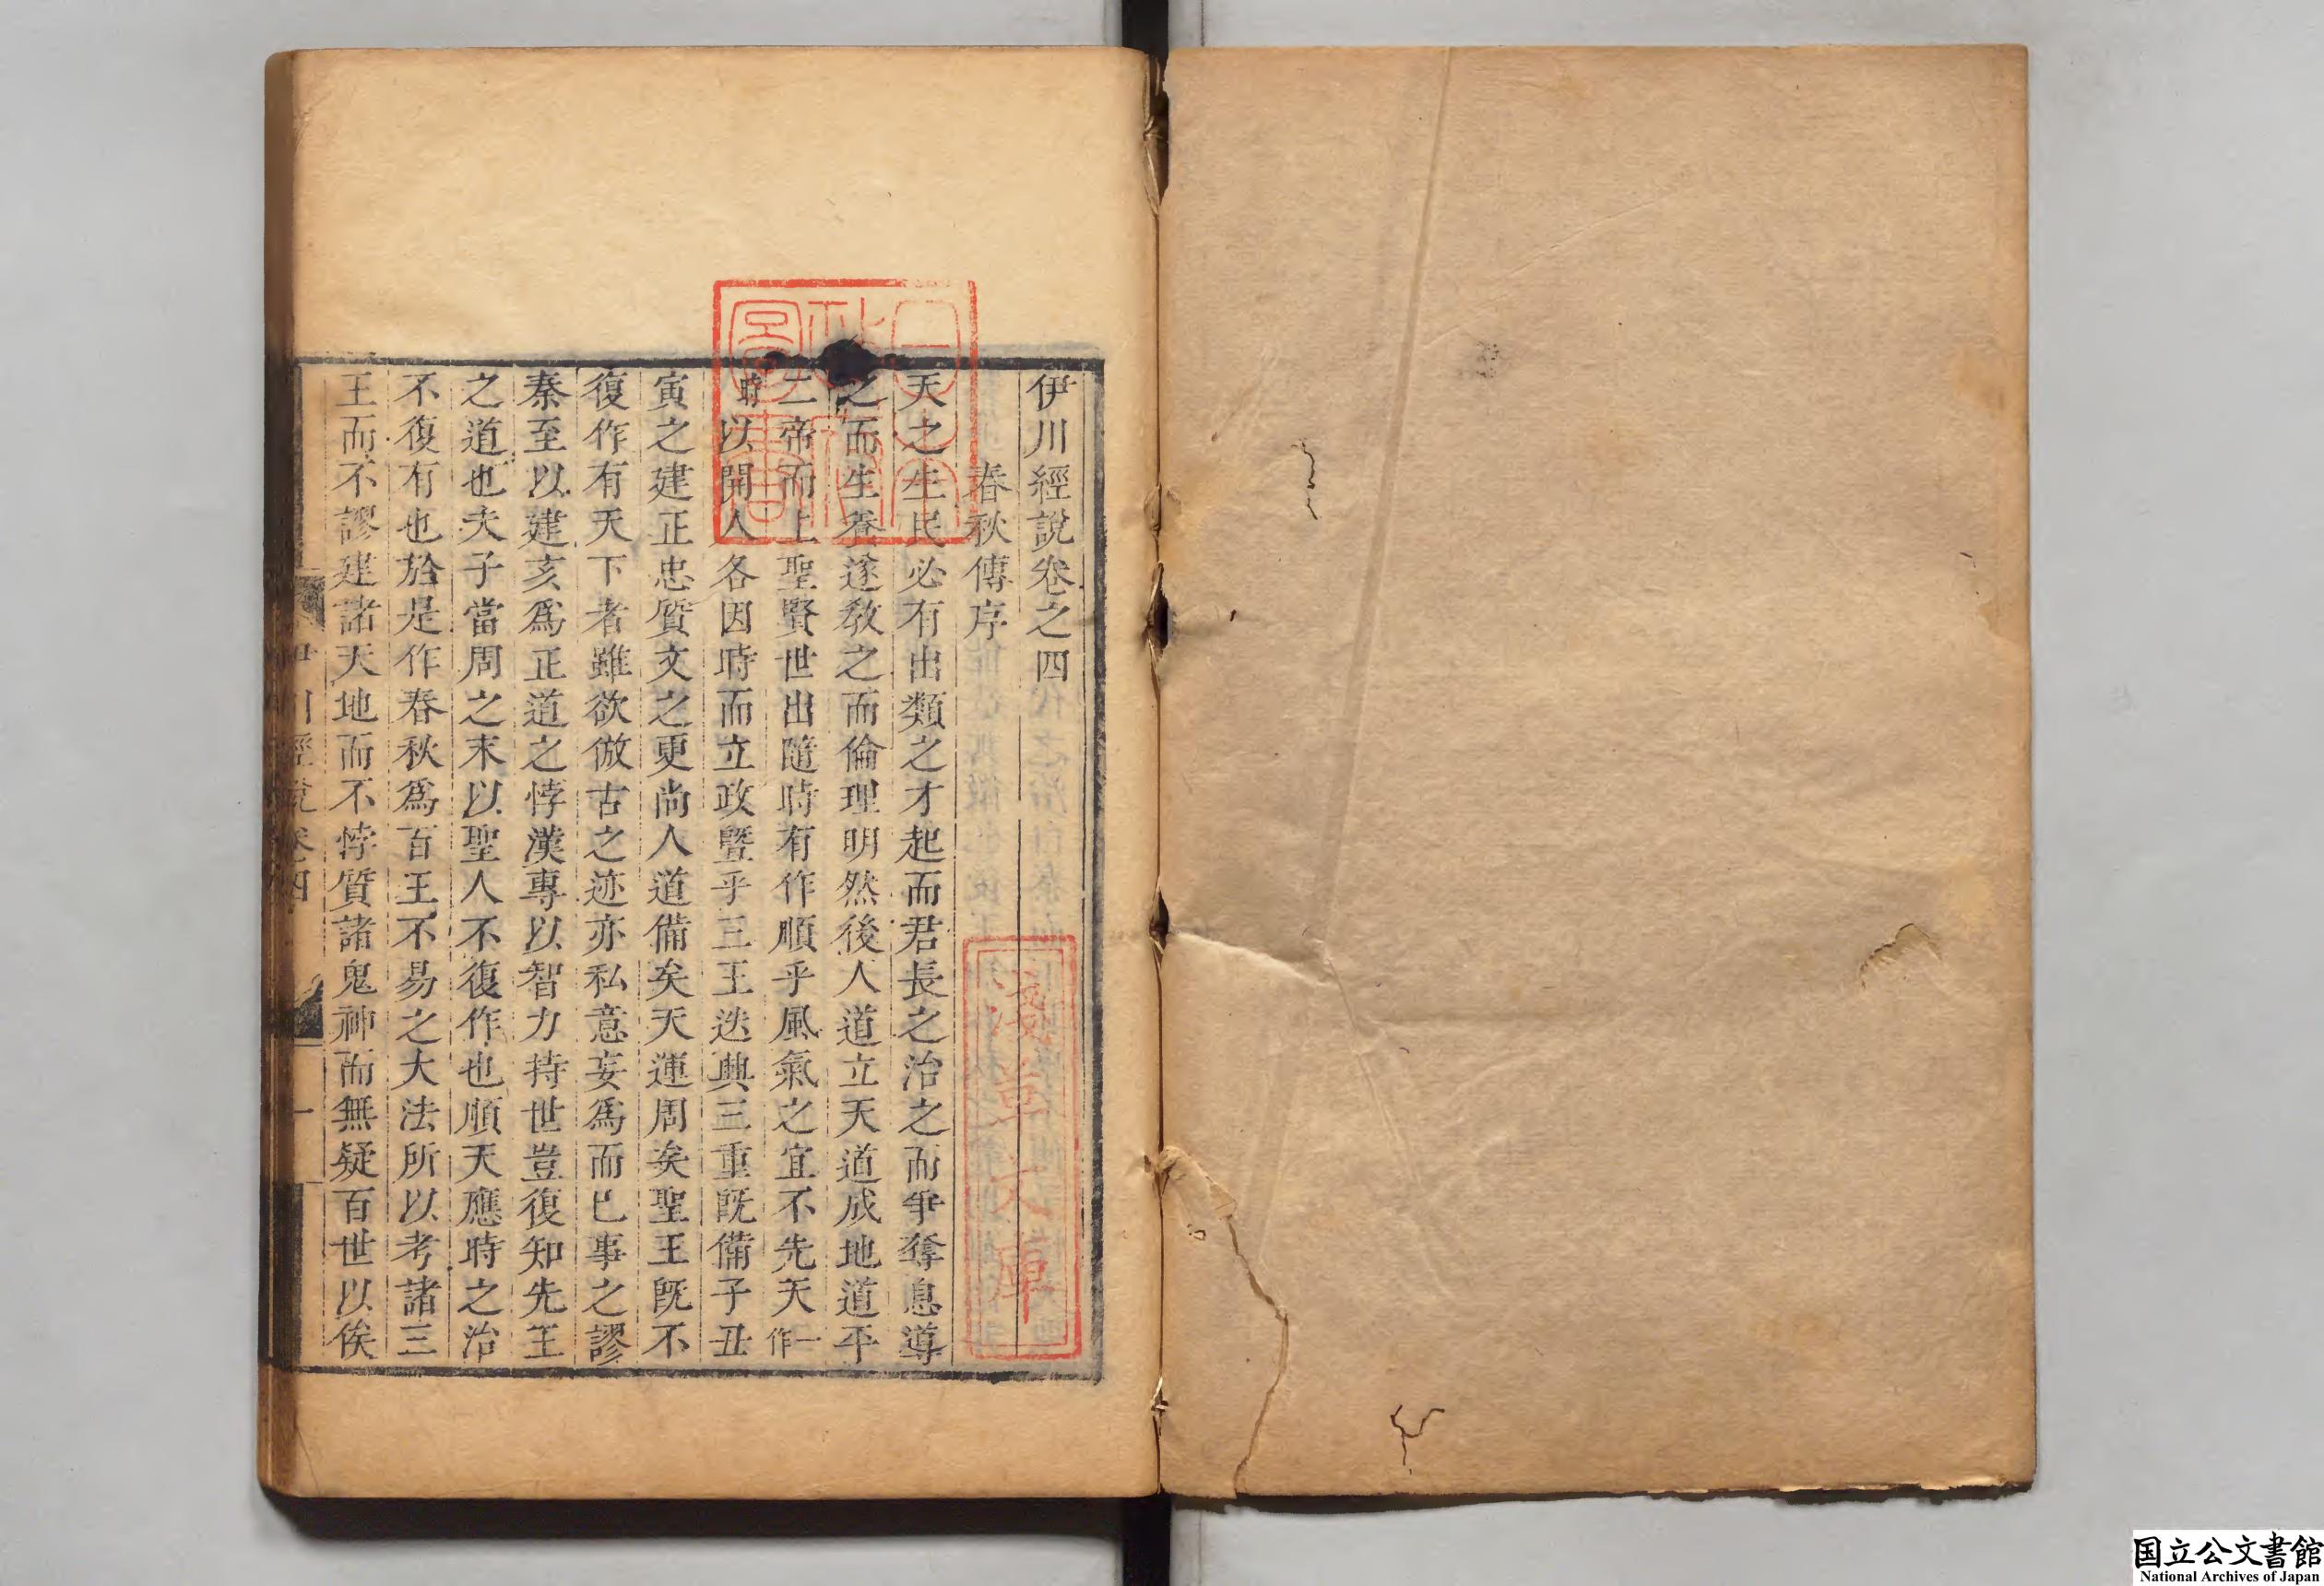 伊川經說卷之四
春秋傳序
天之生民必有出類之才起而君長之治之而爭奪息導
之而生養遂教之而倫理明然後人道立天道成地道平
二帝而上聖賢世出隨時有作順乎風氣之宜不先天一作
時以開人各因時而立政曁乎三王迭興三重旣備子丑
寅之建正忠質文之更尚人道備矣天運周矣聖王旣不
復作有天下者雖欲倣古之迹亦私意妄爲而已事之謬
秦至以建亥爲正道之悖漢專以智力持世豈復知先王
之道也夫子當周之末以聖人不復作也順天應時之治
不復有也於是作春秋爲百王不易之大法所以考諸三
王而不謬建諸天地而不悖質諸鬼神而無疑百世以俟
伊川經說卷四
一
日本政府圖書
淺草文庫
国立公文書館
National Archives of Japan